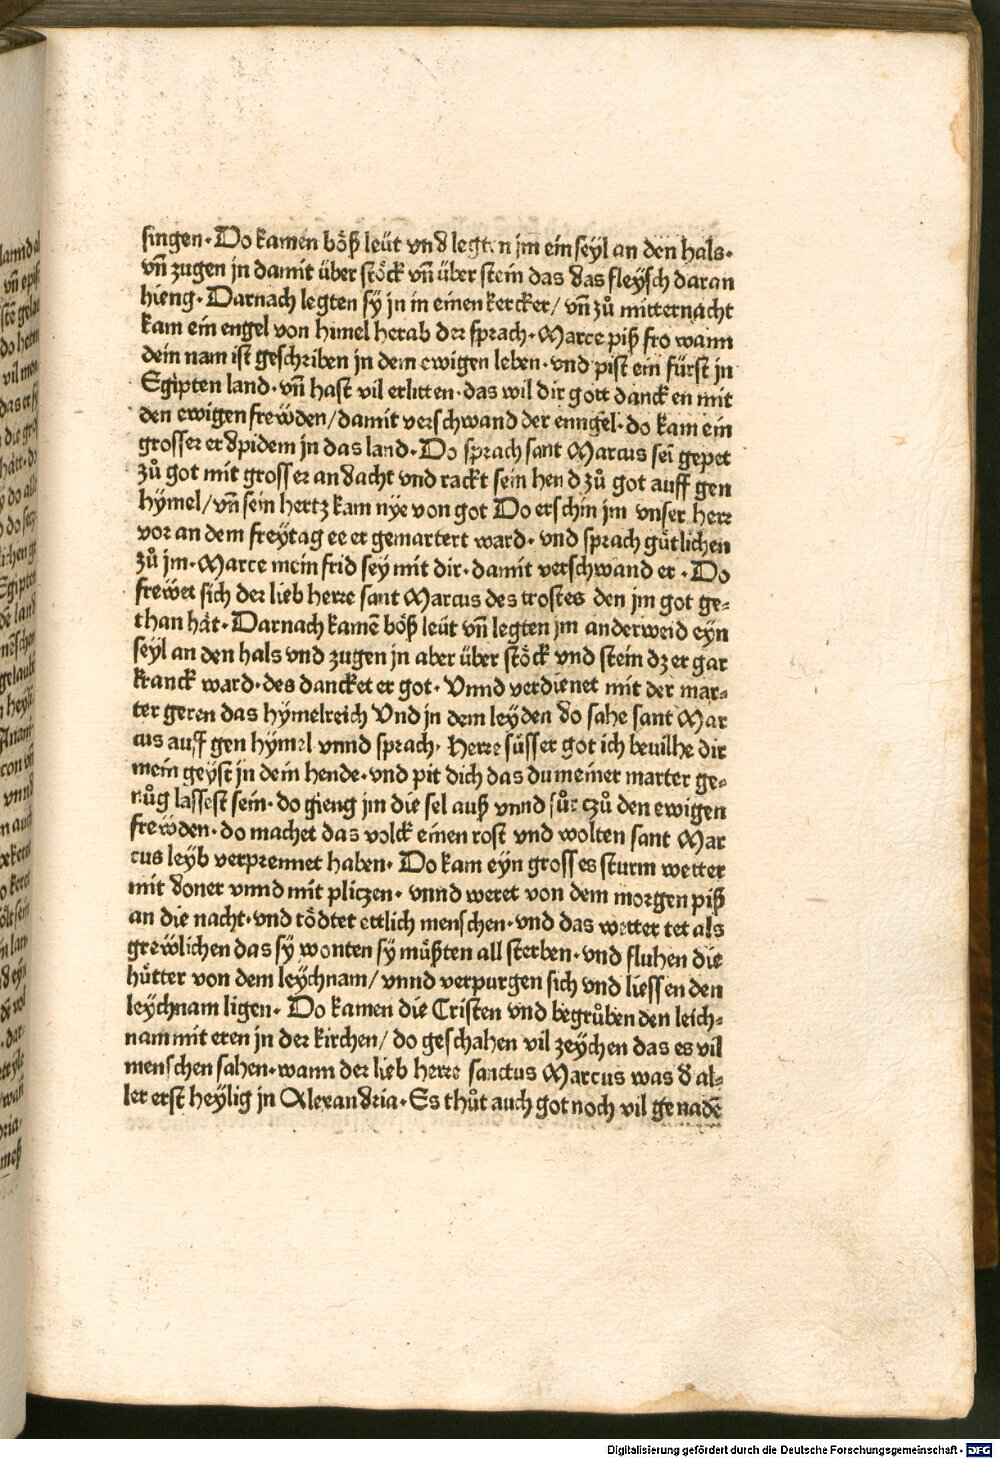 singen. Do kamen böß leüt vnd legten jm ein seyl an den hals.
vn̄ zugen jn damit über stöck vn̄ über stein das das fleysch daran
hieng. Darnach legten sÿ jn in einen kercker/ vn̄ zů mitternacht
kam ein engel von himel herab der sprach. Marce piß fro wann
dein nam ist geschriben jn dem ewigen leben. vnd pist ein fürst jn
Egipten land. vn̄ hast vil erlitten. das wil dir gott dancken mit
den ewigen frewden/ damit verschwand der enngel. do kam ein
grosser erdpidem jn das land. Do sprach sant Marcus sein gepet
zů got mit grosser andacht vnd rackt sein hend zů got auff gen
hÿmel/ vn̄ sein hertz kam nye von got Do erschin jm vnser herr
vor an dem freÿtag ee er gemartert ward. vnd sprach gütlichen
zů jm. Marce mein frid sey mit dir. damit verschwand er. Do
frewet sich der lieb herre sant Marcus des trostes den jm got ge-
than hät. Darnach kamē böß leüt vn̄ legten jm anderweid eÿn
seÿl an den hals vnd zugen jn aber über stöck vnd stein dz er gar
kranck ward. des dancket er got. Vnnd verdienet mit der mar-
ter geren das hÿmelreich Vnd jn dem leÿden do sahe sant Mar
cus auff gen hÿmel vnnd sprach. Herre süsser got ich beuilhe dir
mein geÿst jn dein hende. vnd pit dich das du meiner marter ge-
nůg lassest sein. do gieng jm die sel auß vnnd fůr czů den ewigen
frewden. do machet das volck einen rost vnd wolten sant Mar
cus leyb verprennet haben. Do kam eÿn grosses sturm wetter
mit doner vnnd mit pliczen. vnnd weret von dem morgen piß
an die nacht. vnd tödtet ettlich menschen. vnd das wetter tet als
grewlichen das sÿ wonten sÿ müßten all sterben. vnd fluhen die
hütter von dem leÿchnam/ vnnd verpurgen sich vnd liessen den
leÿchnam ligen. Do kamen die Cristen vnd begrůben den leich-
nam mit eren jn der kirchen/ do geschahen vil zeÿchen das es vil
menschen sahen. wann der lieb herre sanctus Marcus was d al-
ler erst heÿlig jn Alexandria. Es thůt auch got noch vil genadē
Digitalisierung gefördert durch die Deutsche Forschungsgemeinschaft - DFG